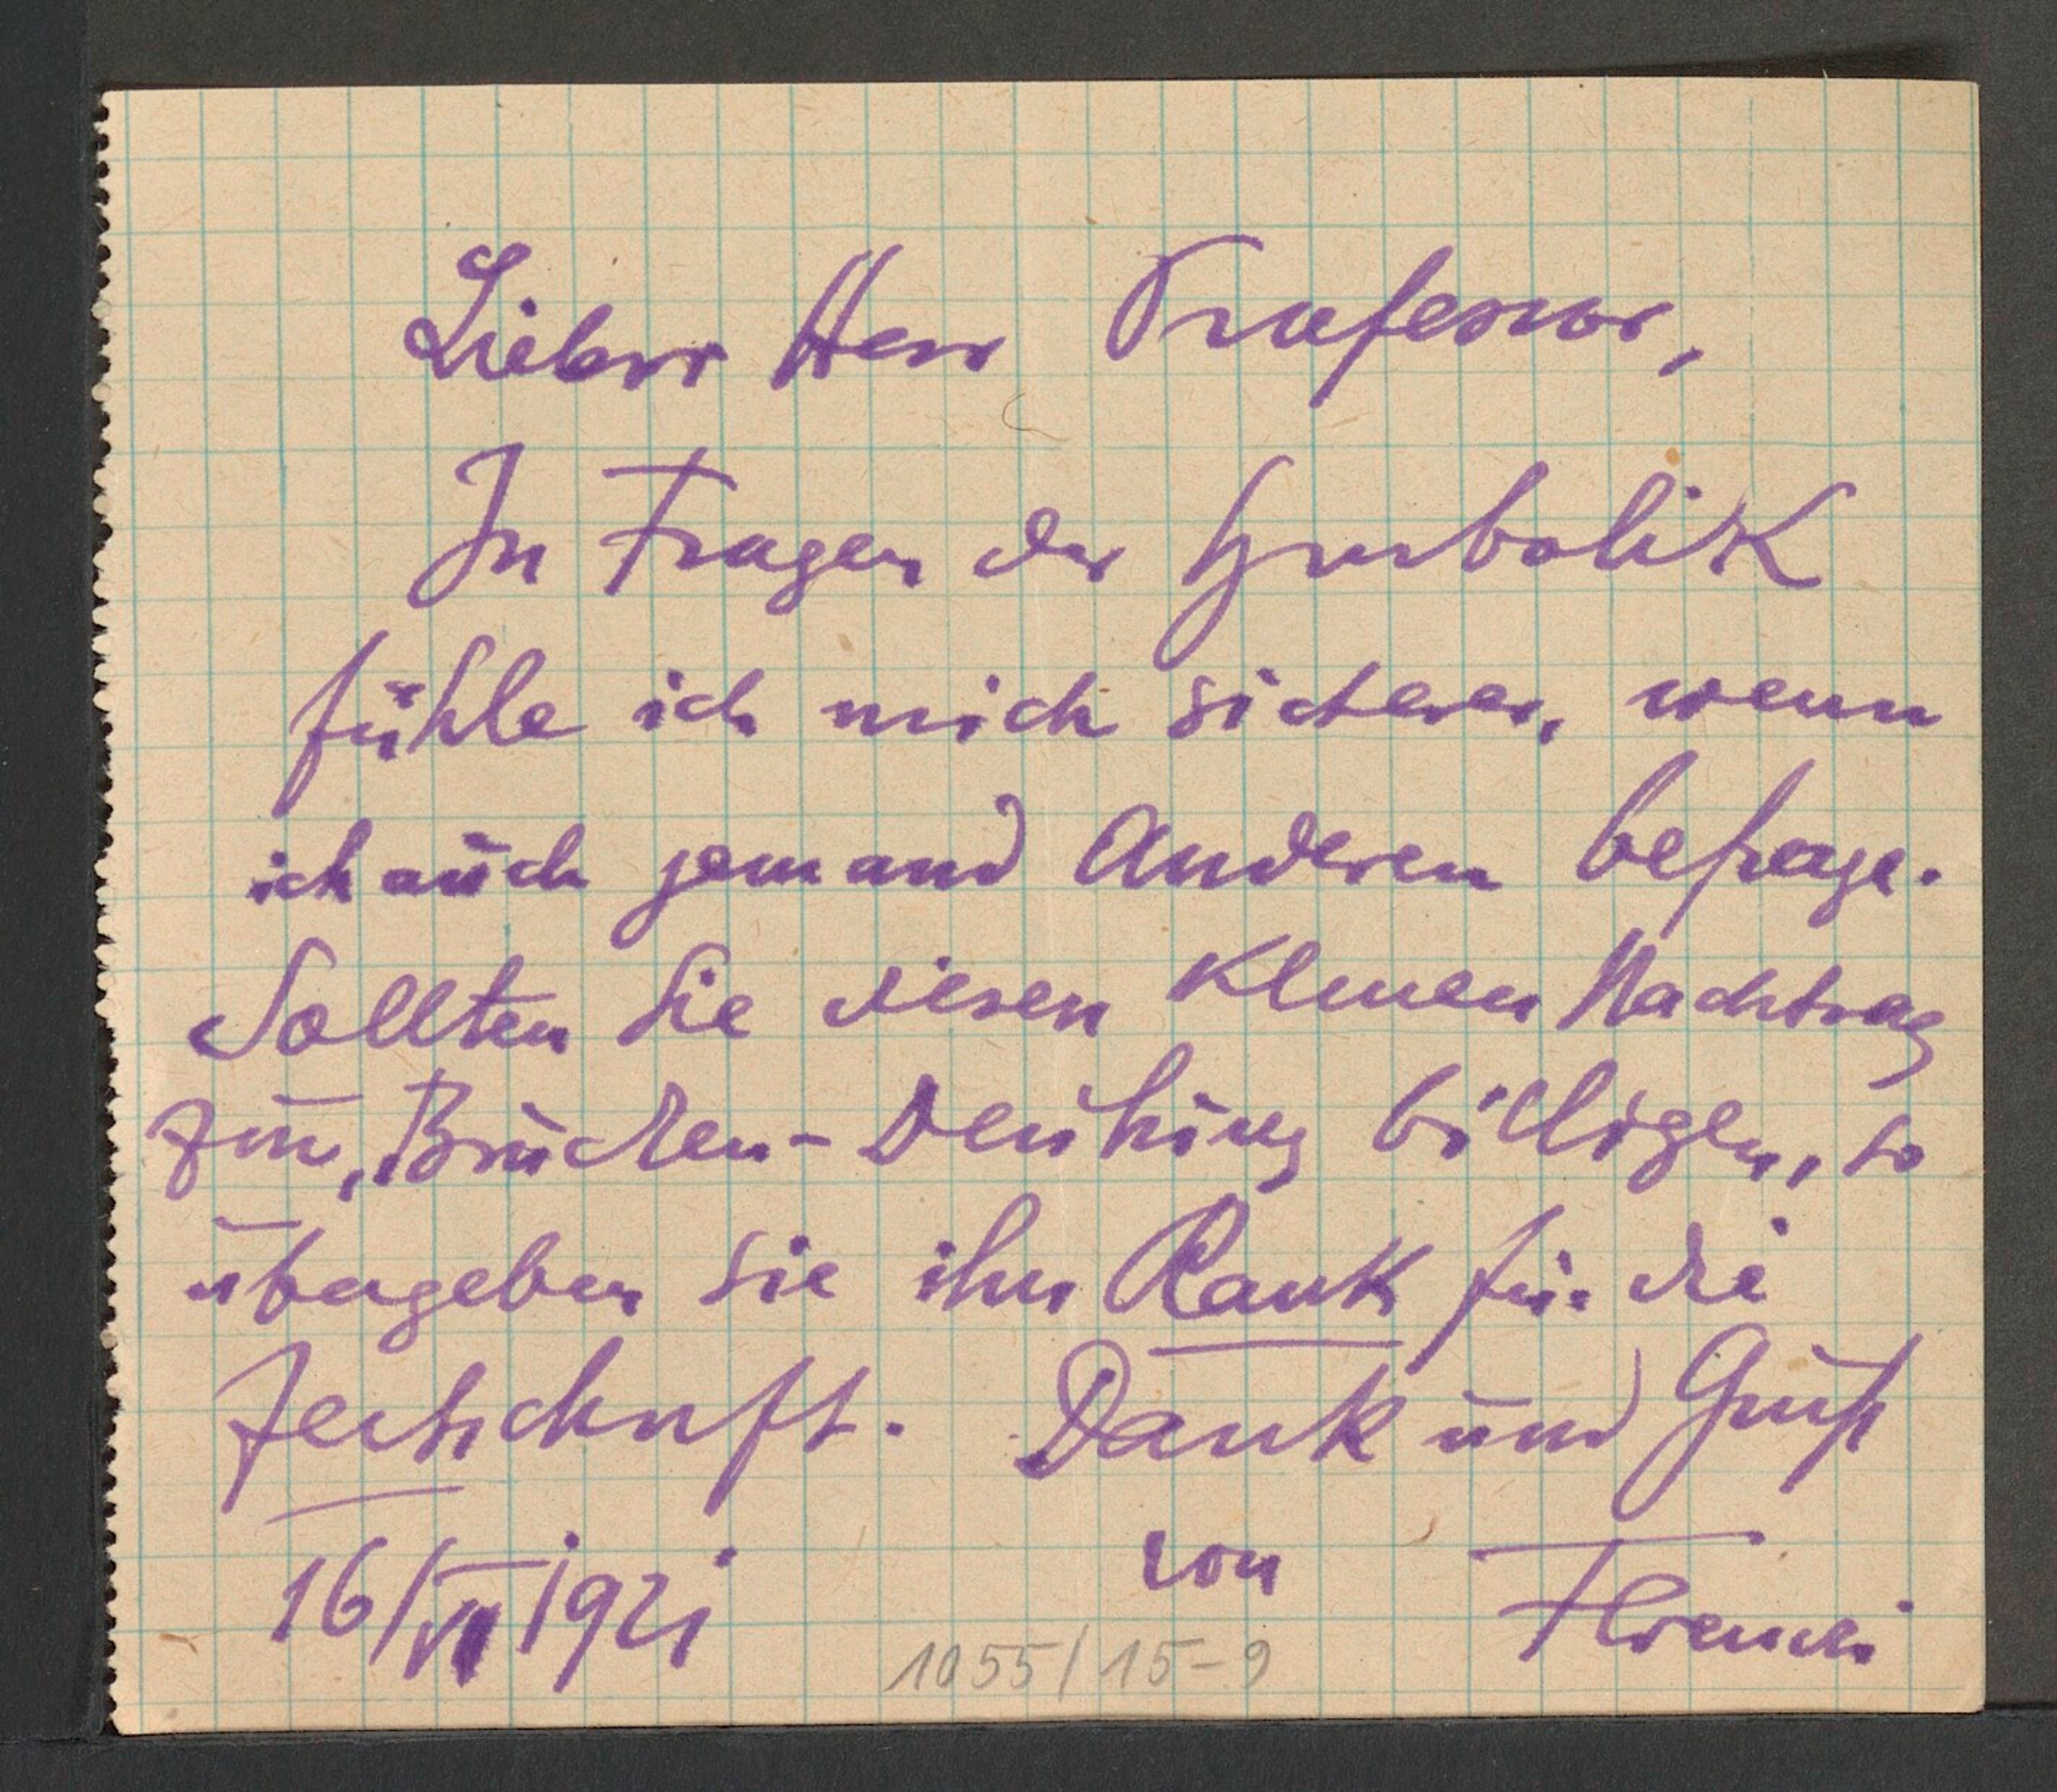 Lieber Herr Professor,
In Fragen der Symbolik
fühle ich mich sicherer, wenn
ich auch jemand Anderen befrage.
Sollten Sie diesen kleinen Nachtrag
zur „Brücken-Deutung billigen, so
übergeben Sie ihn Rank für die
Zeitschrift. Dank und Gruß
16/VI 1921 von Ferenczi
1055/15-9